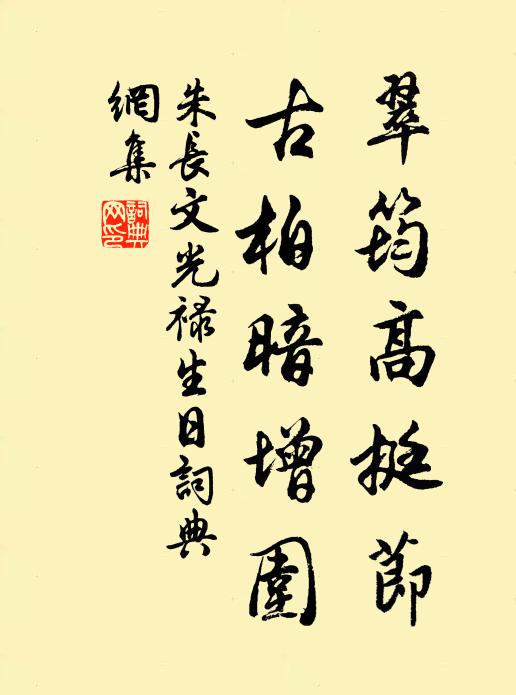 翠筠高挺節
古柏暗增圍
朱長文光祿生日詞典
網集
詞典網印